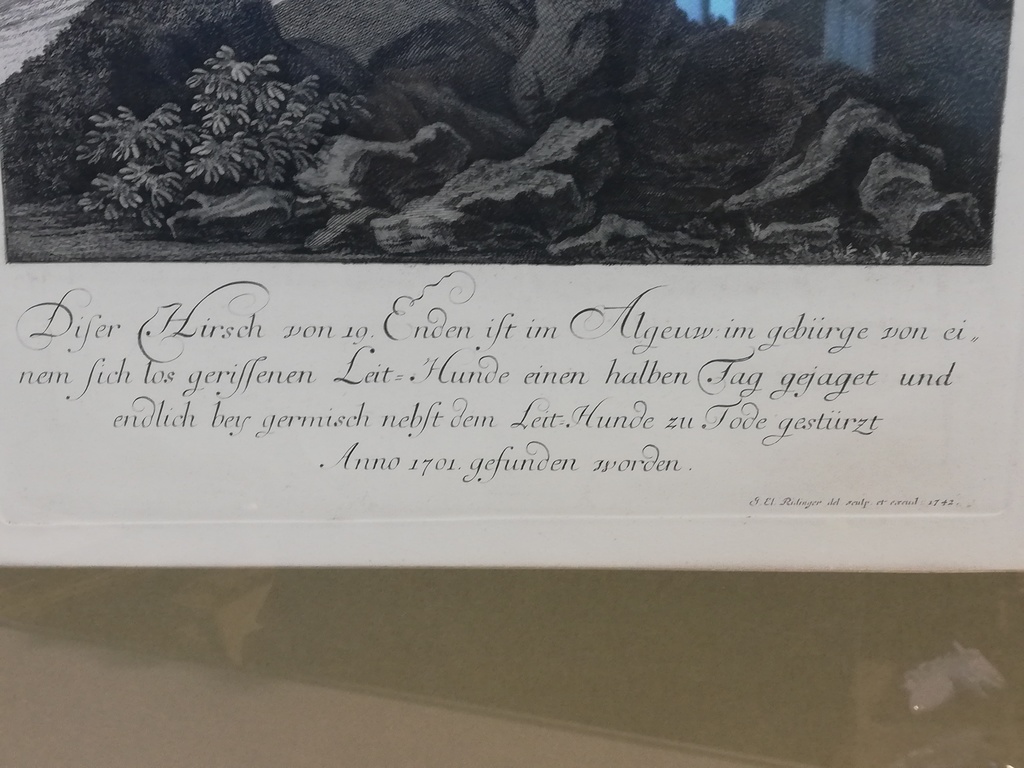 Diser Hirsch von 19. Enden ist im Algeuw im gebürge von ei„
nem sich los gerissenen Leit=Hunde einen halben Tag gejaget und
endlich bey germisch nebst dem Leit=Hunde zu Tode gestürzt
Anno 1701. gefunden worden.
J. El. Ridinger del. sculp. et excud. 1742.